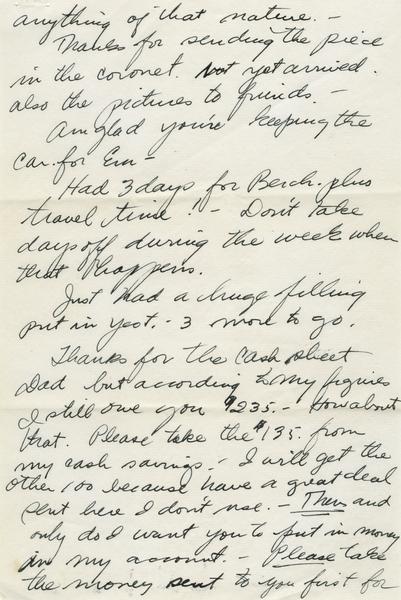 anything of that nature. -
Thanks for sending the piece
in the coronet. Not yet arrived.
also the pictures to friends. -
Am glad you're keeping the
car. for Em -
Had 3 days for Berch. plus
travel time! - Don't take
days off during the week when
that happens.
Just had a huge filling
put in yest. - 3 more to go.
Thanks for the cash sheet
Dad but according to my figures
I still owe you $235. - How about
that. Please take the $135. from
my cash savings. - I will get the
other 100 because have a great deal
sent here I don't use. - Then and
only do I want you to put in money
in my account. - Please take
the money sent to you first for